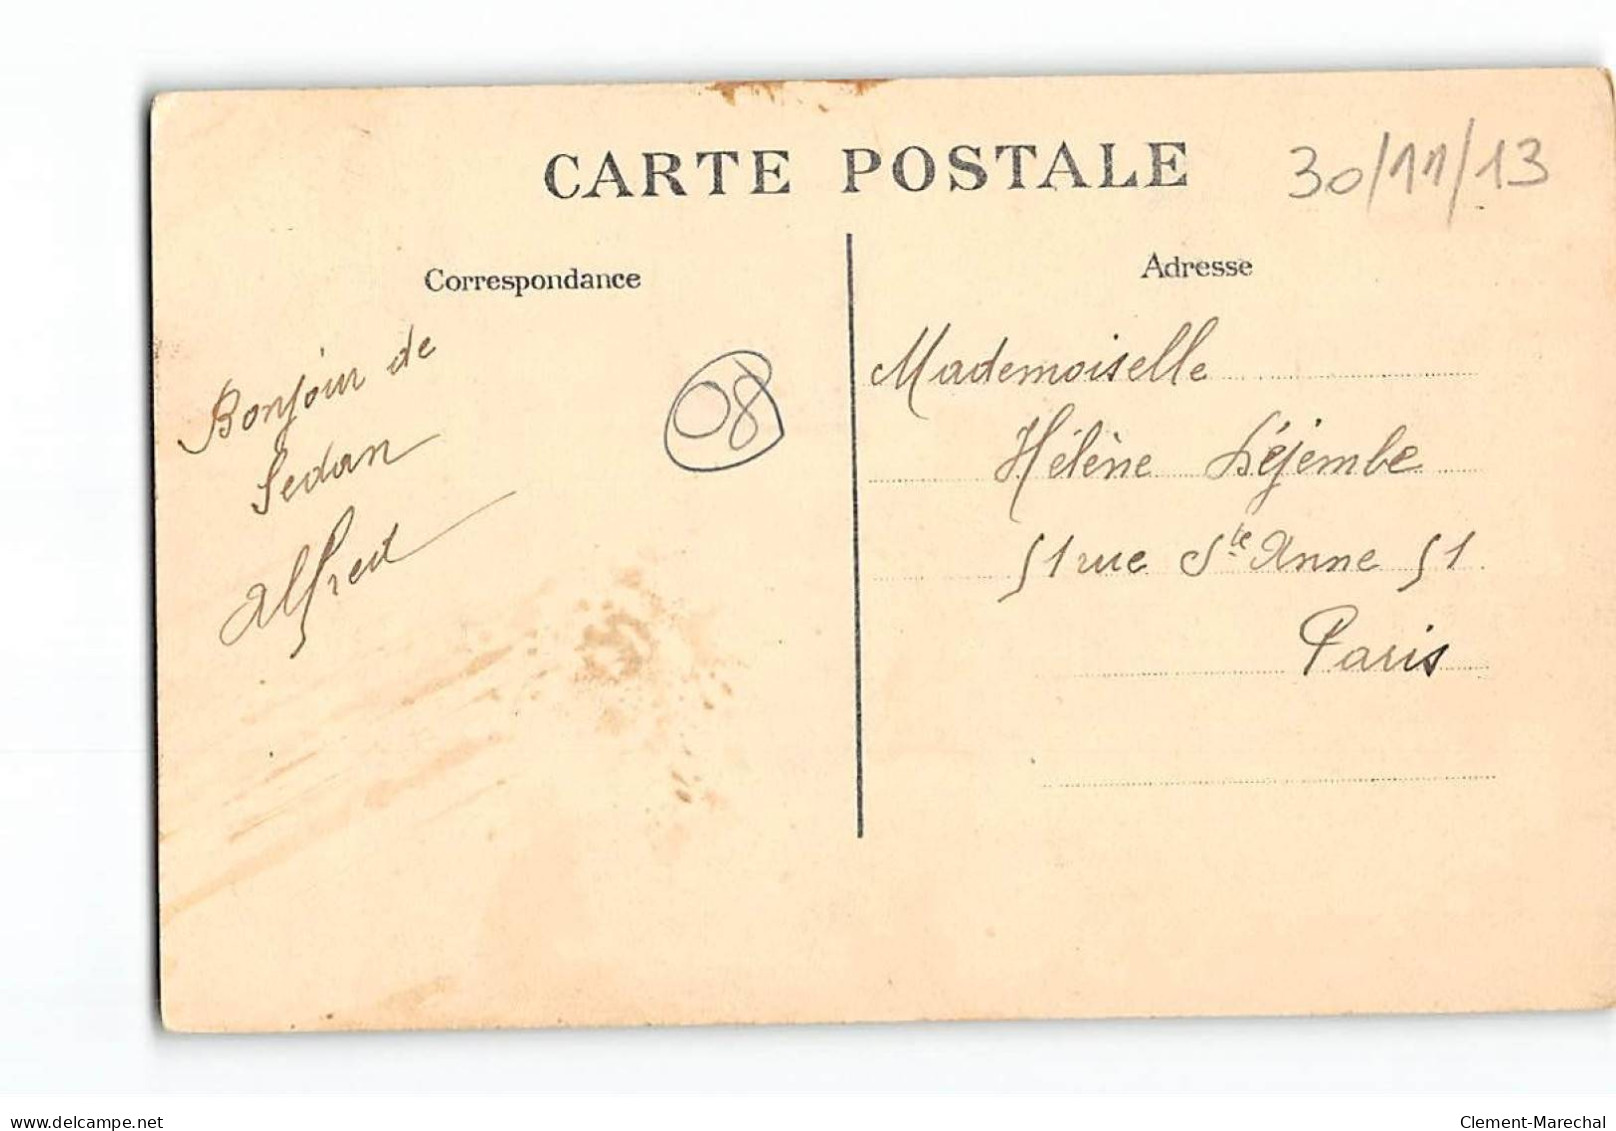 CARTE POSTALE
30/11/13
Correspondance
Adresse
Bonjour de
Sedan
Alfred
08
Mademoiselle
Hélène Léjembe
51 rue Ste Anne 51
Paris
www.delcampe.net
Clement-Marechal